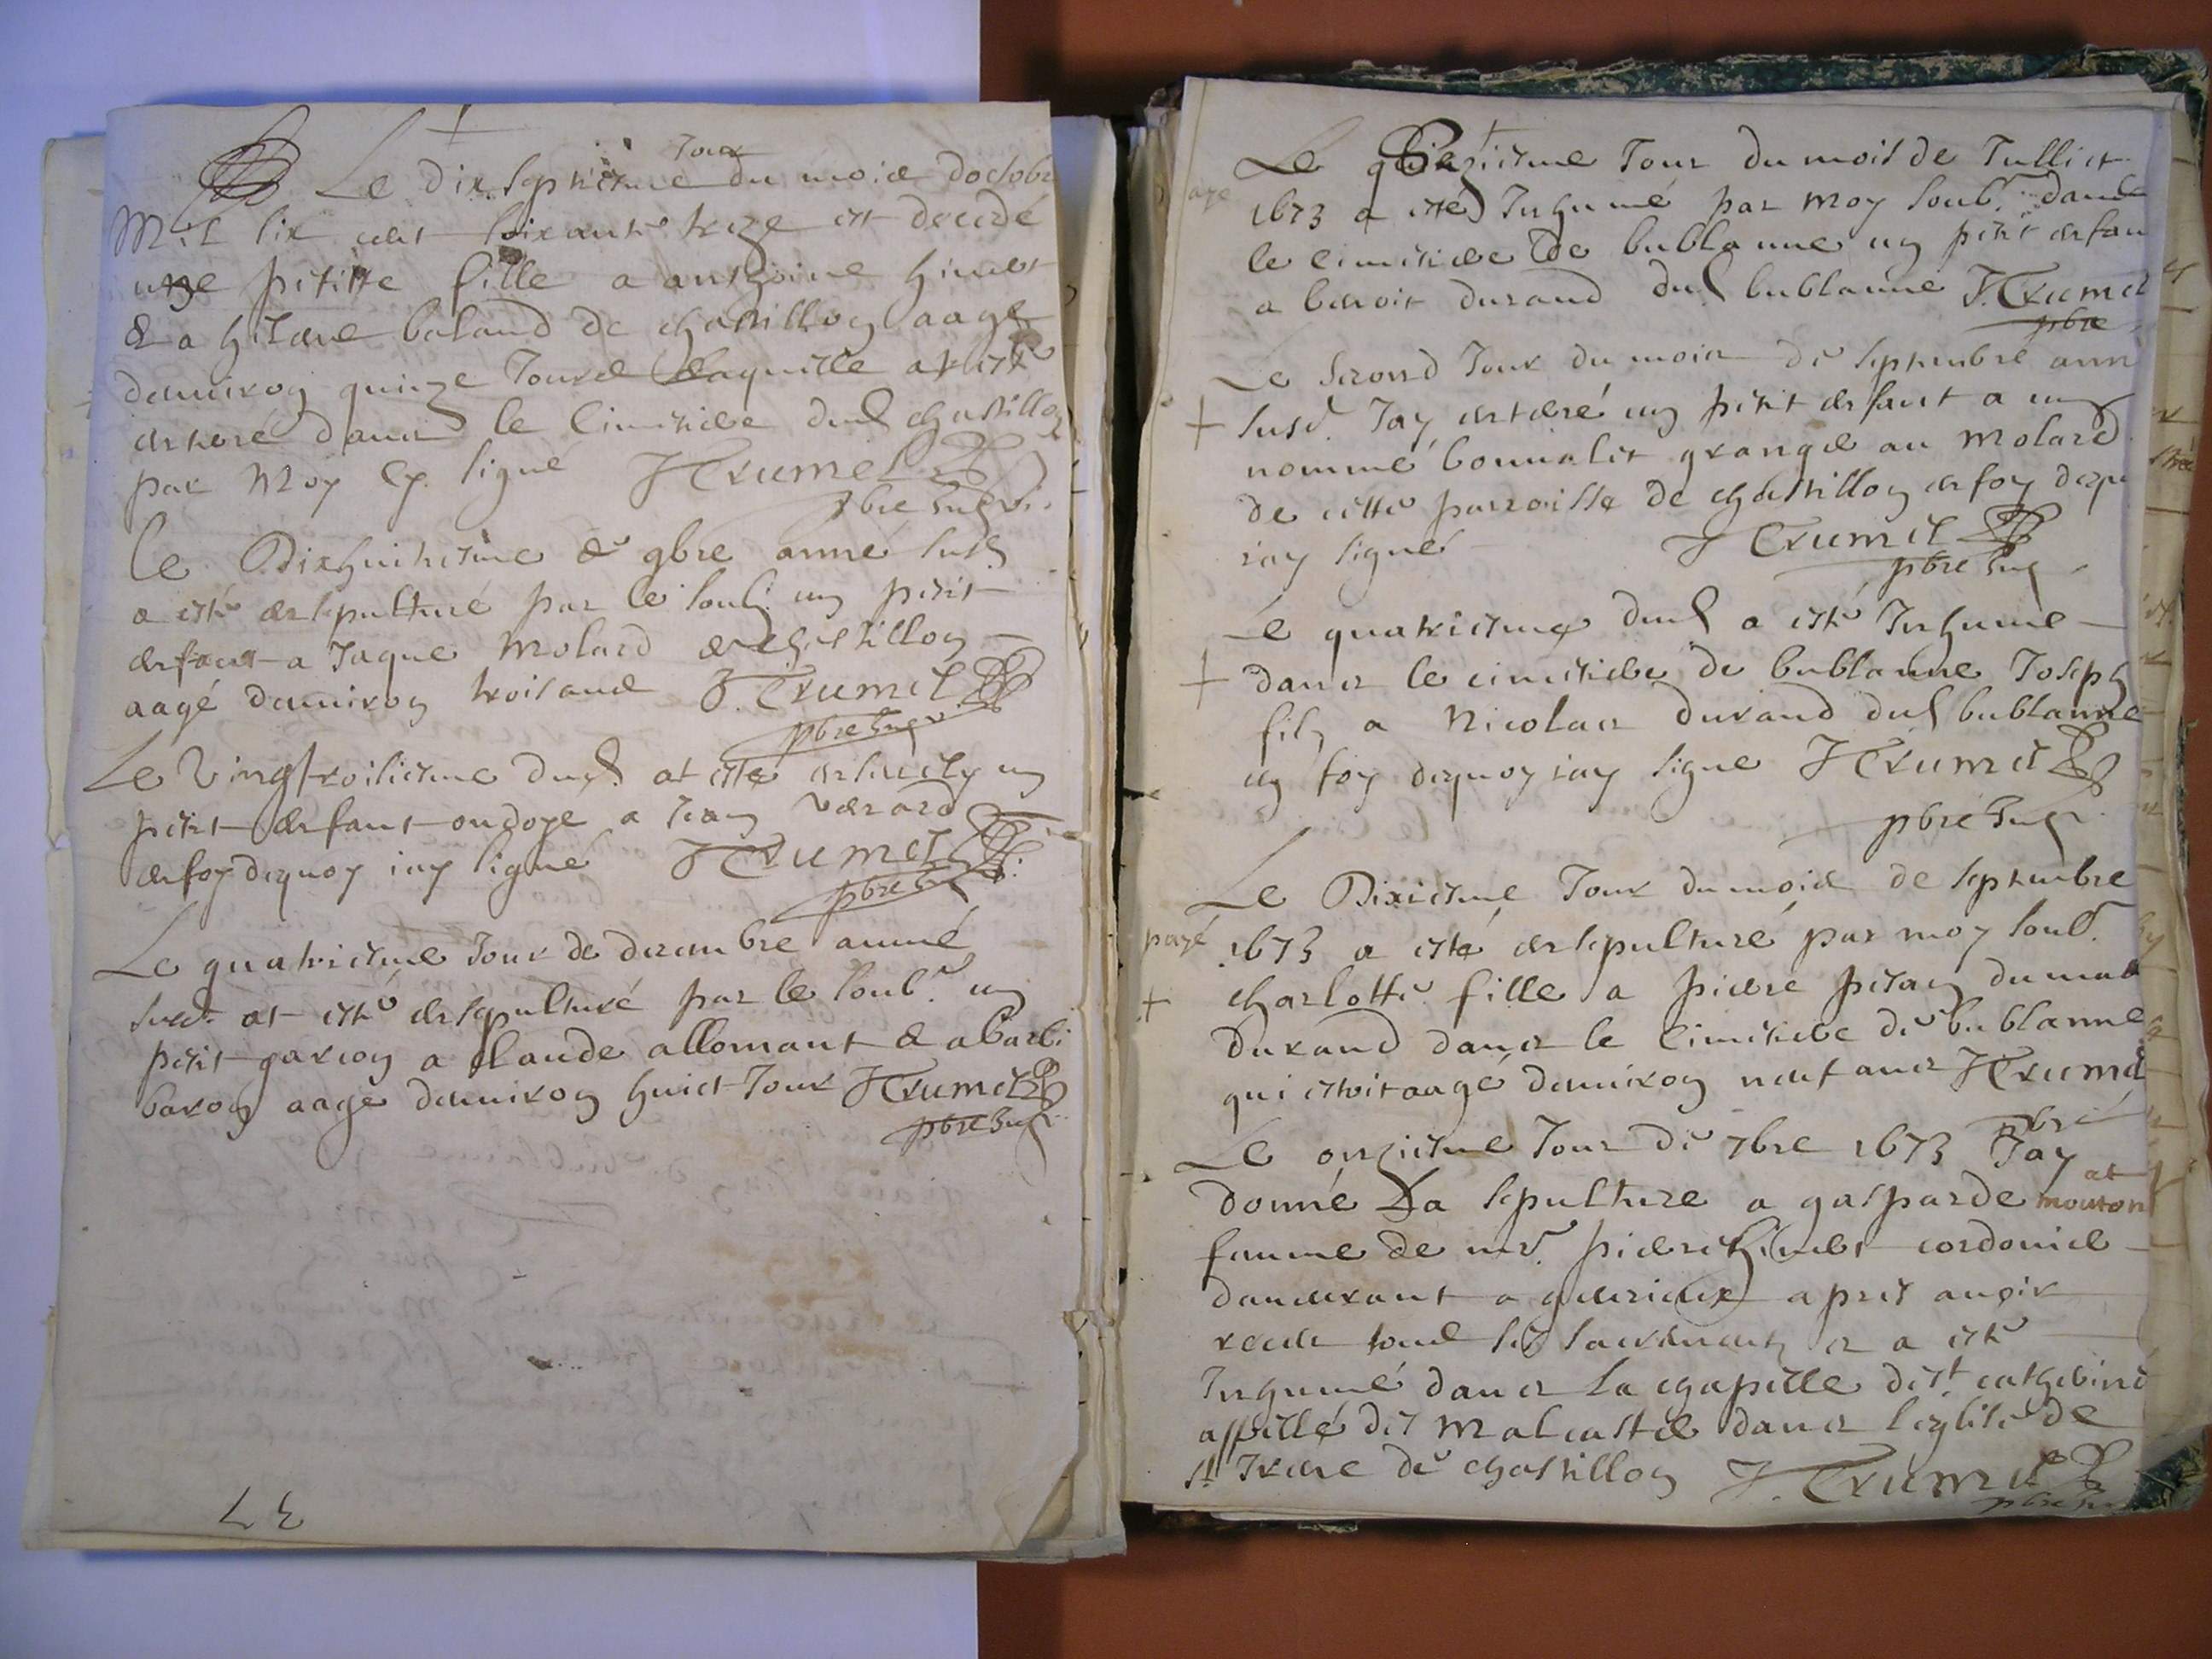 Jour
Le dixseptiesme du mois doctobre
Mil six cent soixante treze est decedé
une petitte fille a anthoine
& a baland de chastillon aagé
denuiron quinze Jours laquelle at esté
enteré dans le Cimetiere dud chastillon
par Moy signé J Trumel
pbre
Le Dixhuitiesme de 9bre anné susd
a esté ensepulturé par le soub. un petit
enfant a Jaque Molard de chastillon
aagé denuiron trois ans J. Trumel
pbre
Le Vingtroisiesme dud at esté enseuely un
petit enfant ondoye a Jean verard
en foy dequoy iay signé J Trumel
pbre
Le quatriesme Jour de decembre anné
susd. at esté ensepulturé par le soub. un
petit garcon a Claude allomant & a
baron aagé denuiron huict Jour J Trumel
pbre
Le Jour du mois de Julliet
1673 a esté Inhumé par moy soub. dans
le cimetiere de bublanne un petit enfan
a benoit durand dud bublanne J. Trumel
pbre
Le second Jour du mois de septembre ann
+ susd. Jay enteré un petit enfant a un
nommé bouualet granger au Molard
de cette parroisse de chastillon en foy dequ
iay signé J Trumel
pbre
Le quatriesme dud a esté Inhumé
+ dans le cimetiere de bublanne Joseph
filz a Nicolas durand dud bublanne
en foy dequoy iay signé J Trumel
pbre
Le Dixiesme Jour du mois de septembre
payé 1673 a esté ensepulturé par moy soub.
+ charlotte fille a piere
durand dans le Cimetiere de bublanne
qui estoit aagé denuiron neuf ans J Trumel
pbre
Le onziesme Jour de 7bre 1673 Jay
donné La sepulture a gasparde mouton
femme de mr. piere cordonier
a apres auoir
receu tous les sacrements et a esté
Inhumé dans la chapelle de st catherine
appellé des dans leglise de
st Irene de chastillon J. Trumel
pbre